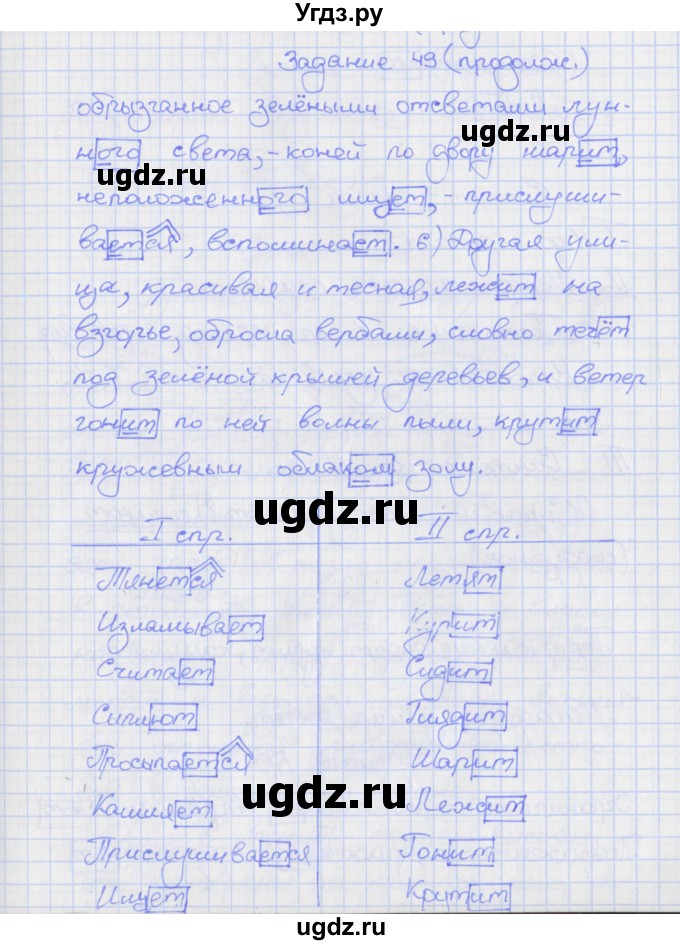 Угдз.ру
Задание 49 (продолж.)
обрызганное зелёными отсветами лун-
ного света, - коней по двору шарит,
неположенного ищет, - прислуши-
вается, вспоминает. 6) Другая ули-
ца, красивая и тесная, лежит на
взгорье, обросла вербами, словно течёт
под зелёной крышей деревьев, и ветер
гонит по ней волны пыли, крутит
кружевным облаком золу.
I спр. II спр.
Тянется Летят
Изламывает Курит
Считает Сидит
Сиплют Глядит
Просыпается Шарит
Кашляет Лежит
Прислушивается Гонит
Ищет Крутит
ugdz.ru
ugdz.ru
ugdz.ru
ugdz.ru
ugdz.ru
ugdz.ru
ugdz.ru